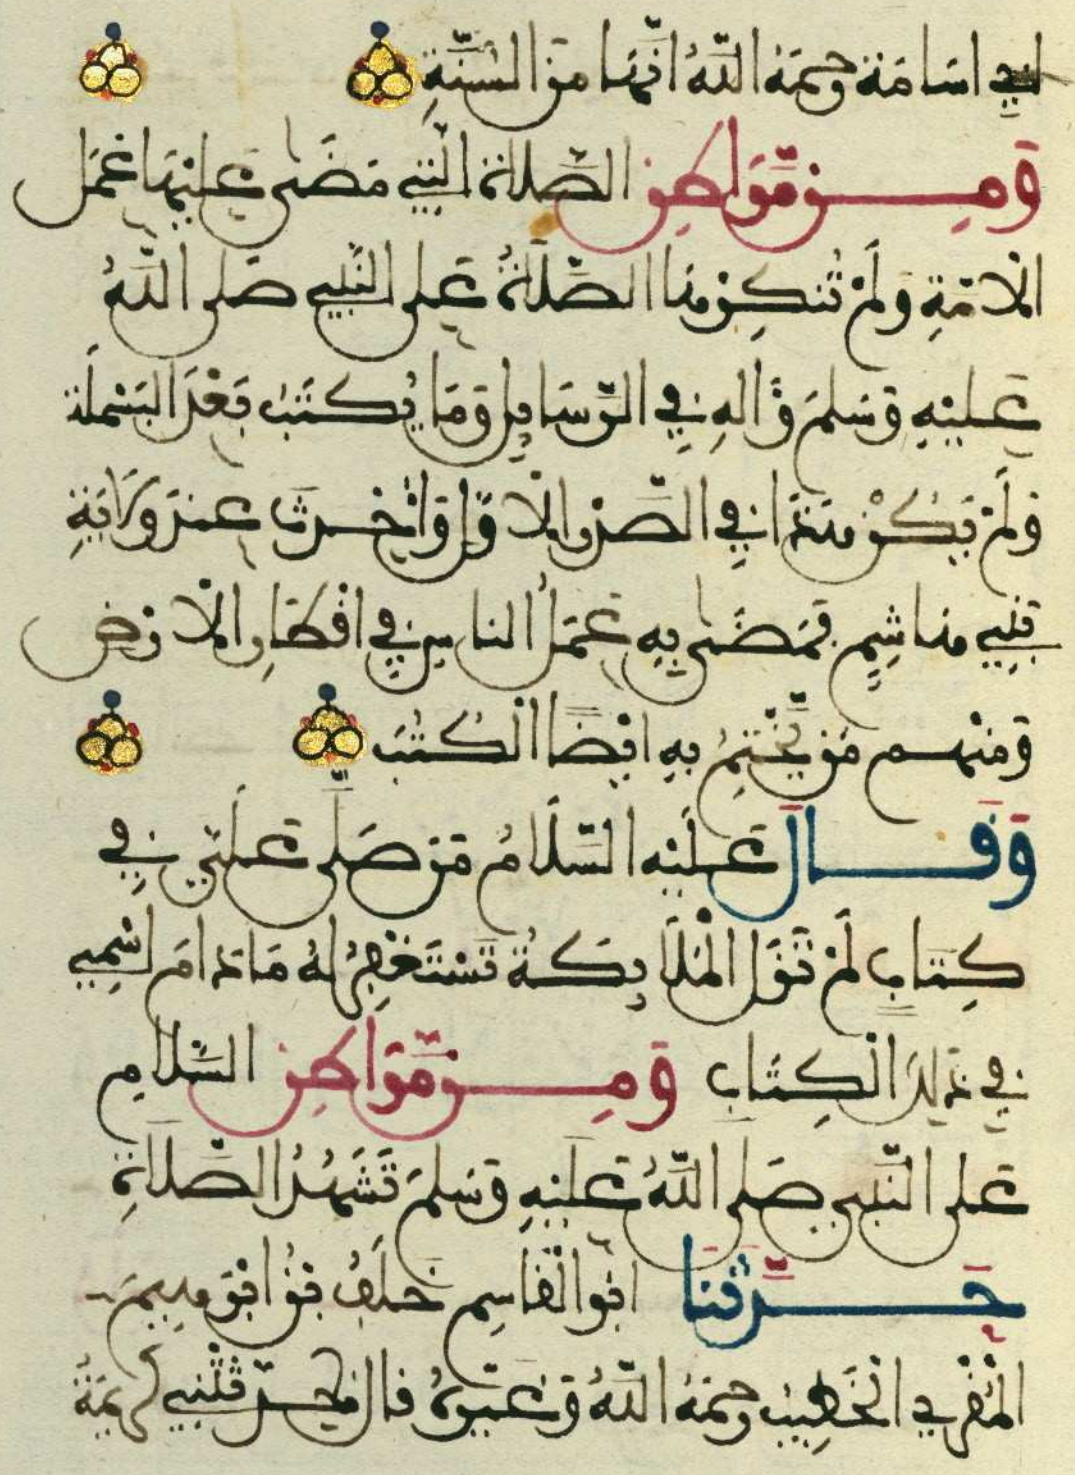 ابي اسامة رحمه الله انها من السنة
ومن مواطن الصلاة التي مضى عليها عمل
الامة ولم تنكرها الصلاة على النبي صلى الله
عليه وسلم واله في الرسايل وما يكتب بعد البسملة
ولم يكن هذا في الصدر الاول واحدث عند ولاية
بني هاشم فمضى به عمل الناس في اقطار الارض
ومنهم من يختم به ايضا الكتب
وقال عليه السلام من صلى علي في
كتاب لم تزل الملايكة تستغفر له ما دام اسمي
في ذلك الكتاب ومن مواطن السلام
على النبي صلى الله عليه وسلم تشهد الصلاة
حدثنا ابو القاسم خلف بن ابرهيم
المقري الخطيب رحمه الله وغيره قال حدثتني كريمة